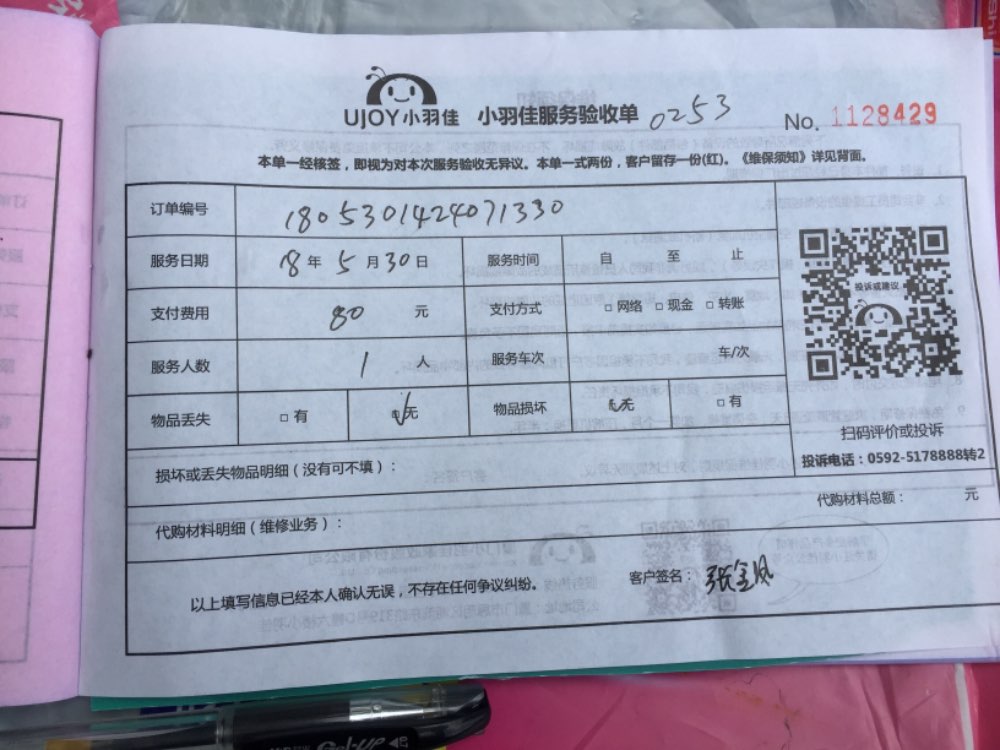 UJOY小羽佳 小羽佳服务验收单 0253 No. 1128429
本单一经核签，即视为对本次服务验收无异议。本单一式两份，客户留存一份(红)。《维保须知》详见背面。
订单编号 1805301424071330
服务日期 18年 5月30日 服务时间 自 至 止
支付费用 80 元 支付方式 □网络 □现金 □转账
服务人数 1 人 服务车次 车/次
物品丢失 □有 □无 物品损坏 □无 □有
投诉或建议
扫码评价或投诉
投诉电话：0592-5178888转2
损坏或丢失物品明细（没有可不填）：
代购材料总额： 元
代购材料明细（维修业务）：
以上填写信息已经本人确认无误，不存在任何争议纠纷。 客户签名：张金凤
Gel-UP